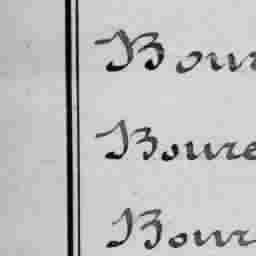 Bour
Boure
Bour